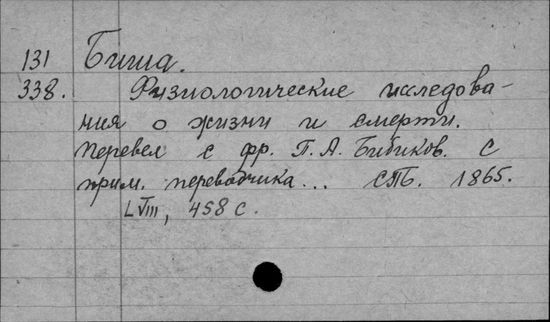 131 Биша.
338. Физиологические исследова-
ния о жизни и смерти.
Перевел с фр. П. А. Бибиков. С
прим. переводчика... СПб. 1865.
LVIII, 458 с.